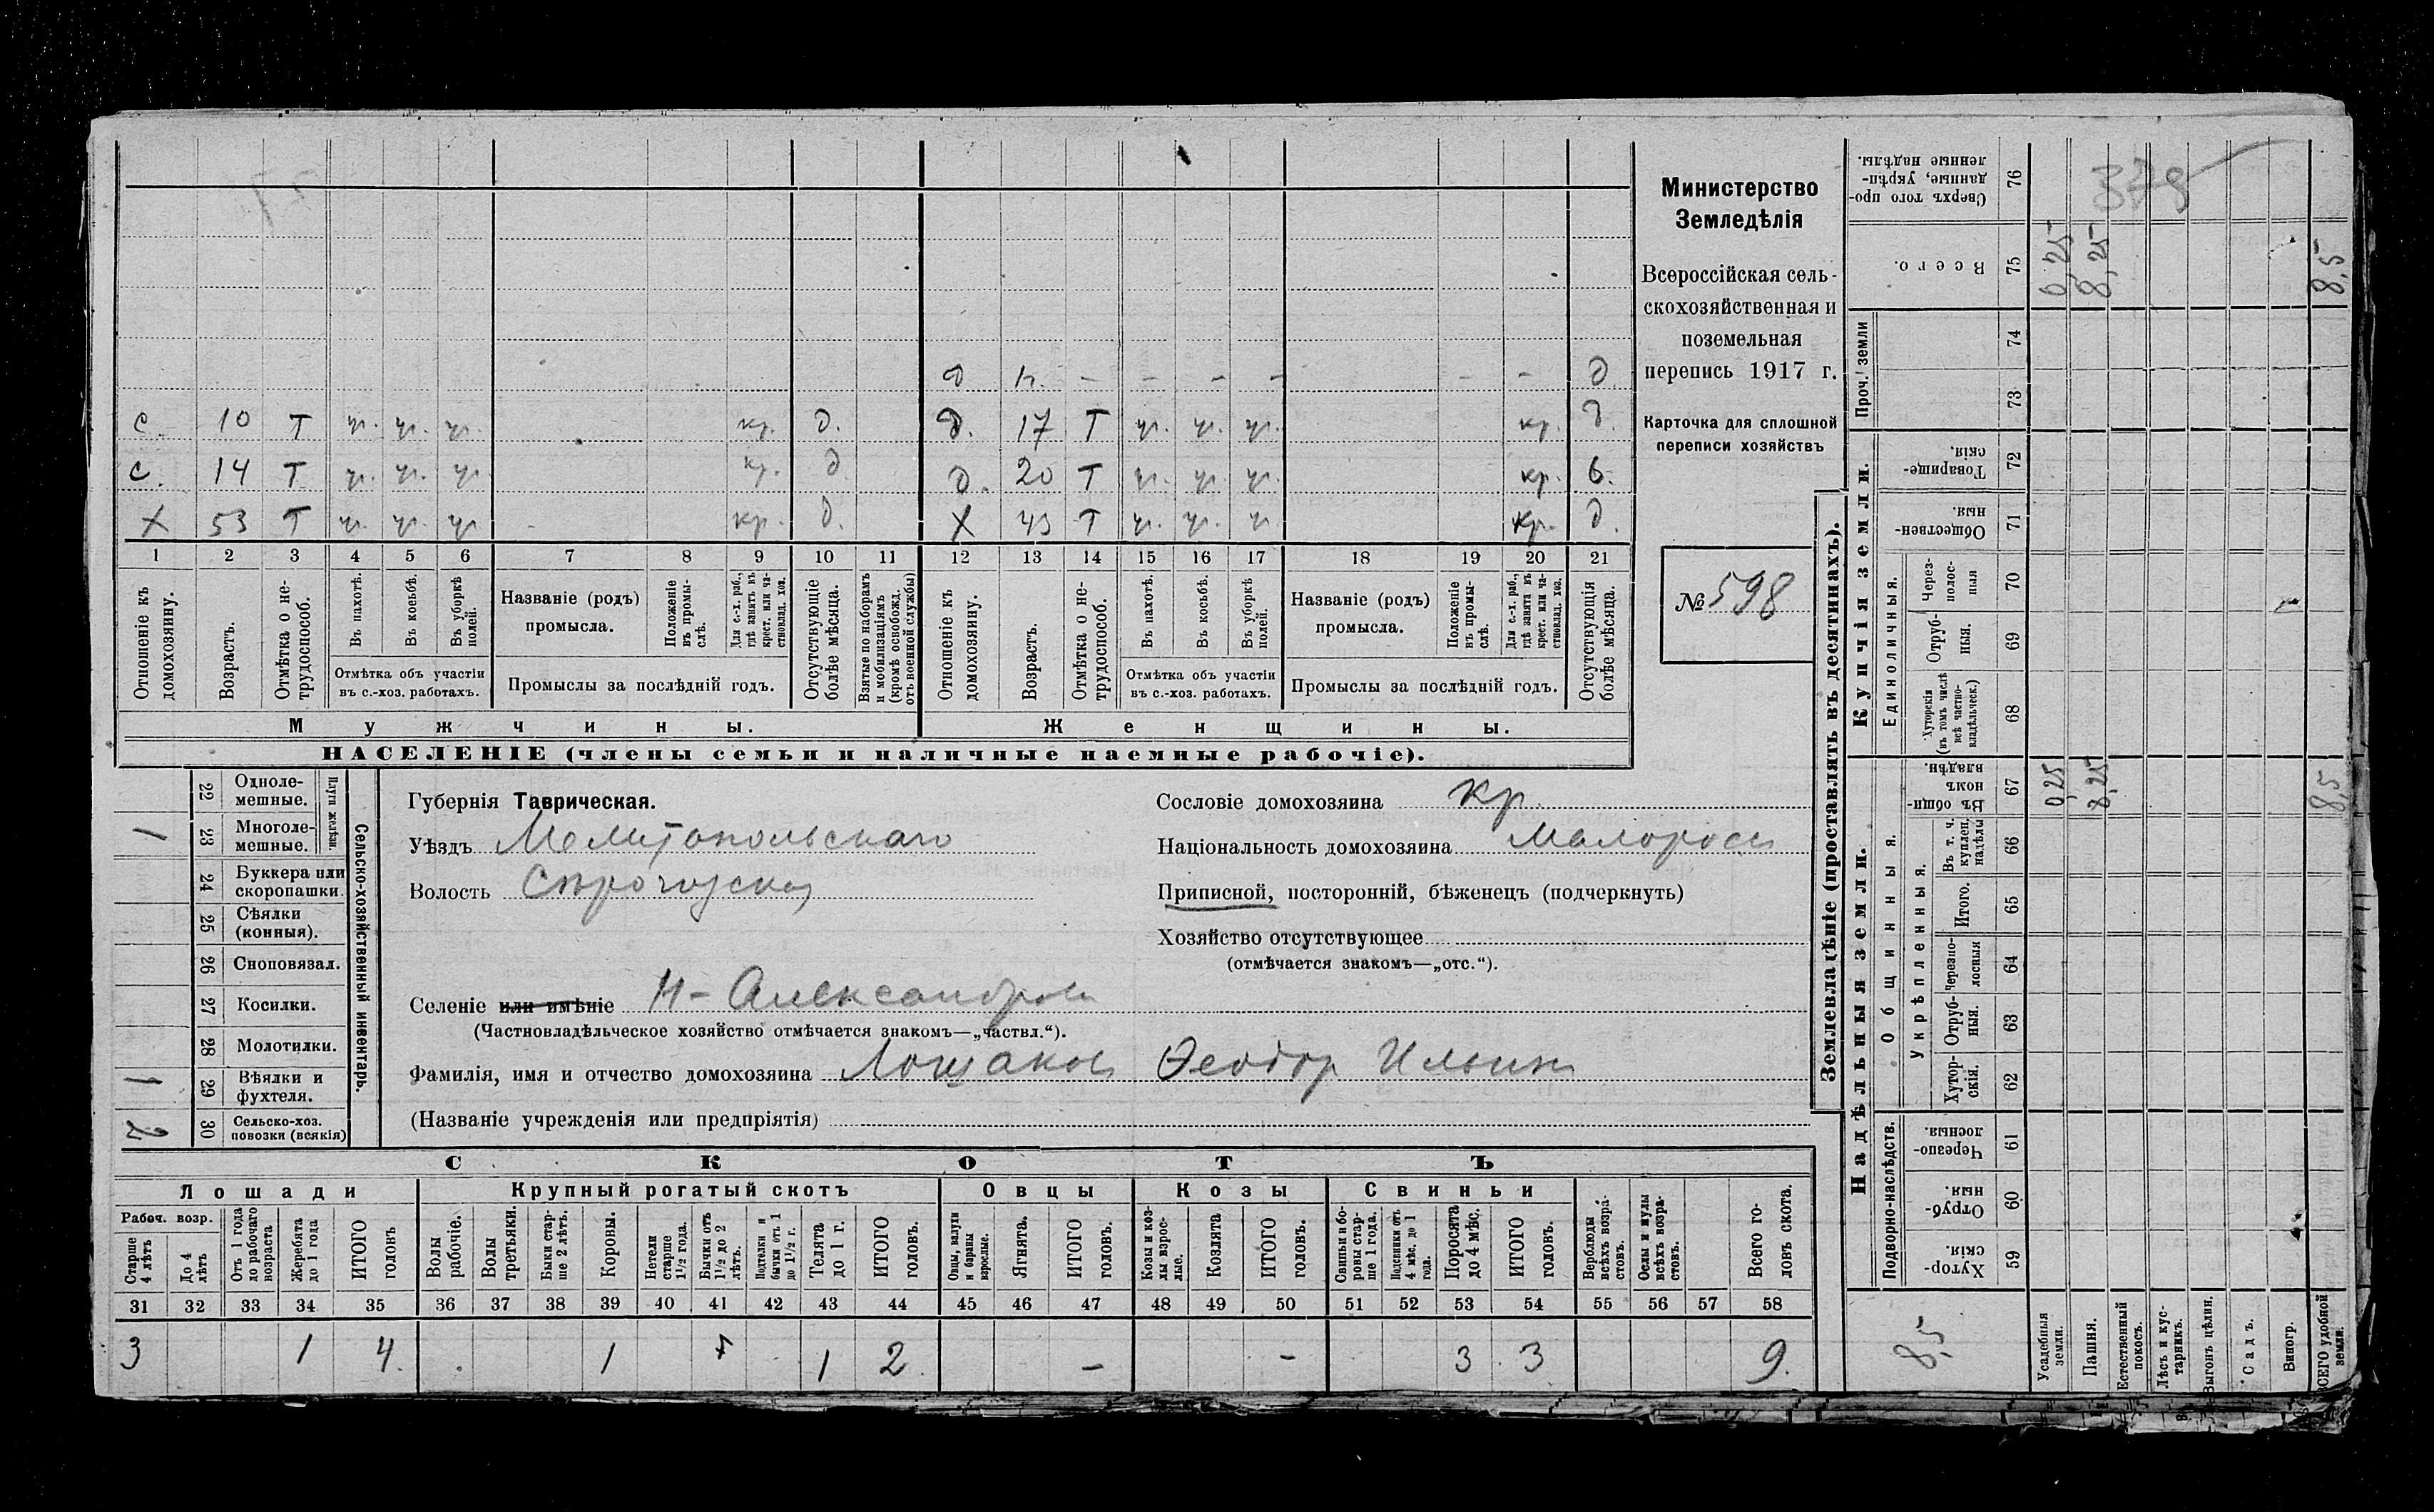 Министерство
Земледѣлія
Всероссійская сель-
скохозяйственная и
поземельная
перепись 1917 г.
Карточка для сплошной
переписи хозяйствъ
№ 598
д – – – – – – д
с. 10 Т уч. уч. уч. кр. д. д. 17 Т уч. уч. уч. кр. д.
с. 14 Т уч. уч. уч. кр. д д. 20 Т уч. уч. уч. кр. в.
Х 53 Т уч. уч. уч кр. д. Х 43 Т уч. уч. уч кр. д.
1 2 3 4 5 6 7 8 9 10 11 12 13 14 15 16 17 18 19 20 21
Отношеніе къ домохозяину.
Возрастъ.
Отмѣтка о не-трудоспособ.
Въ пахотѣ.
Въ косьбѣ.
Въ уборкѣ полей.
Отмѣтка объ участіи
въ с.-хоз. работахъ.
Названіе (родъ)
промысла.
Положеніе въ промы-слѣ.
Для с.-х. раб., гдѣ занятъ въ крест. или ча-стновлад. хоз.
Промыслы за послѣдній годъ.
Отсутствующіе болѣе мѣсяца.
Взятые по наборамъ и мобилизаціямъ (кромѣ освобожд. отъ военной службы)
Отношеніе къ домохозяину.
Возрастъ.
Отмѣтка о не-трудоспособ.
Въ пахотѣ.
Въ косьбѣ.
Въ уборкѣ полей.
Отмѣтка объ участіи
въ с.-хоз. работахъ.
Названіе (родъ)
промысла.
Положеніе въ промы-слѣ.
Для с.-х. раб., гдѣ занята въ крест. или ча-стновлад. хоз.
Промыслы за послѣдній годъ.
Отсутствующія болѣе мѣсяца.
Мужчины. Женщины.
НАСЕЛЕНІЕ (члены семьи и наличные наемные рабочіе).
Сельско-хозяйственный инвентарь.
Плуги желѣзн.
22 Одноле-мешные.
1 23 Многоле-мешные.
24 Буккера или скоропашки.
25 Сѣялки (конныя).
26 Сноповязал.
27 Косилки.
28 Молотилки.
1 29 Вѣялки и фухтеля.
2 30 Сельско-хоз. повозки (всякія)
Губернія Таврическая.
Уѣздъ Мелитопольскаго
Волость Сѣрогозская
Селеніе или имѣніе Н-Александровка
(Частновладѣльческое хозяйство отмѣчается знакомъ—„частвл.“).
Фамилія, имя и отчество домохозяина Лощаковъ Ѳеодор Ильин
(Названіе учрежденія или предпріятія)
Сословіе домохозяина кр.
Національность домохозяина Малоросъ
Приписной, посторонній, бѣженецъ (подчеркнуть)
Хозяйство отсутствующее
(отмѣчается знакомъ—„отс.“).
СКОТЪ
Лошади Крупный рогатый скотъ Овцы Козы Свиньи
Рабоч. возр.
Старше 4 лѣтъ
До 4 лѣтъ
Отъ 1 года до рабочаго возраста
Жеребята до 1 года
ИТОГО головъ
Волы рабочіе.
Волы третьяки.
Быки стар-ше 2 лѣтъ.
Коровы.
Нетели старше 1½ года.
Бычки отъ 1½ до 2 лѣтъ.
Подтелки и бычки отъ 1 до 1½ г.
Телята до 1 г.
ИТОГО головъ.
Овцы, валухи и бараны взрослые.
Ягнята.
ИТОГО головъ.
Козы и коз-лы взрос-лые.
Козлята
ИТОГО головъ.
Свиньи и бо-ровы стар-ше 1 года.
Подсвинки отъ 4 мѣс. до 1 года.
Поросята до 4 мѣс.
ИТОГО головъ.
Верблюды всѣхъ возра-стовъ.
Ослы и мулы всѣхъ возра-стовъ.
Всего го-ловъ скота.
31 32 33 34 35 36 37 38 39 40 41 42 43 44 45 46 47 48 49 50 51 52 53 54 55 56 57 58
3 1 4. 1 1 2 – – 3 3 9.
Землевладѣніе (проставлять въ десятинахъ).
Надѣльныя земли. Купчія земли.
Подворно-наслѣдств. Общинныя. Укрѣпленныя. Единоличныя. Проч. земли
Хутор-скія. 59
Отруб-ныя. 60
Черезпо-лосныя. 61
Хутор-скія. 62
Отруб-ныя. 63
Черезпо-лосныя 64
Итого. 65
Въ т. ч. куплен. надѣлы 66
Въ общин-номъ владѣн. 67
Хуторскія (въ томъ числѣ всѣ частно-владѣльческ.) 68
Отруб-ныя. 69
Через-полос-ныя 70
Обществен-ныя. 71
Товарище-скія. 72
73
74
Всего. 75
Сверхъ того про-данные, укрѣп-ленные надѣлы. 76
Усадебныя земли. 0,25 0,25
Пашня. 8,25 8,25
Естественный покосъ.
Лѣсъ и кус-тарникъ.
Выгонъ цѣлин.
Садъ.
Виногр.
ВСЕГО удобной земли. 8,5 8,5
8,5
378